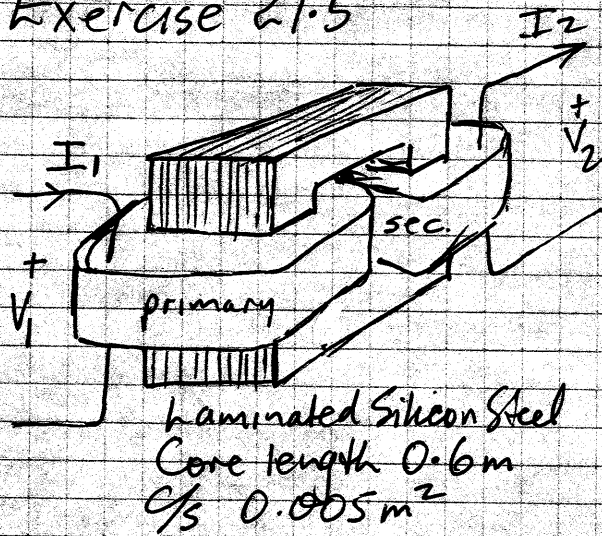 Exercise 21.5
I2
I1
+
V2
sec.
+
V1
primary
Laminated Silicon Steel
Core length 0.6m
c/s 0.005m²